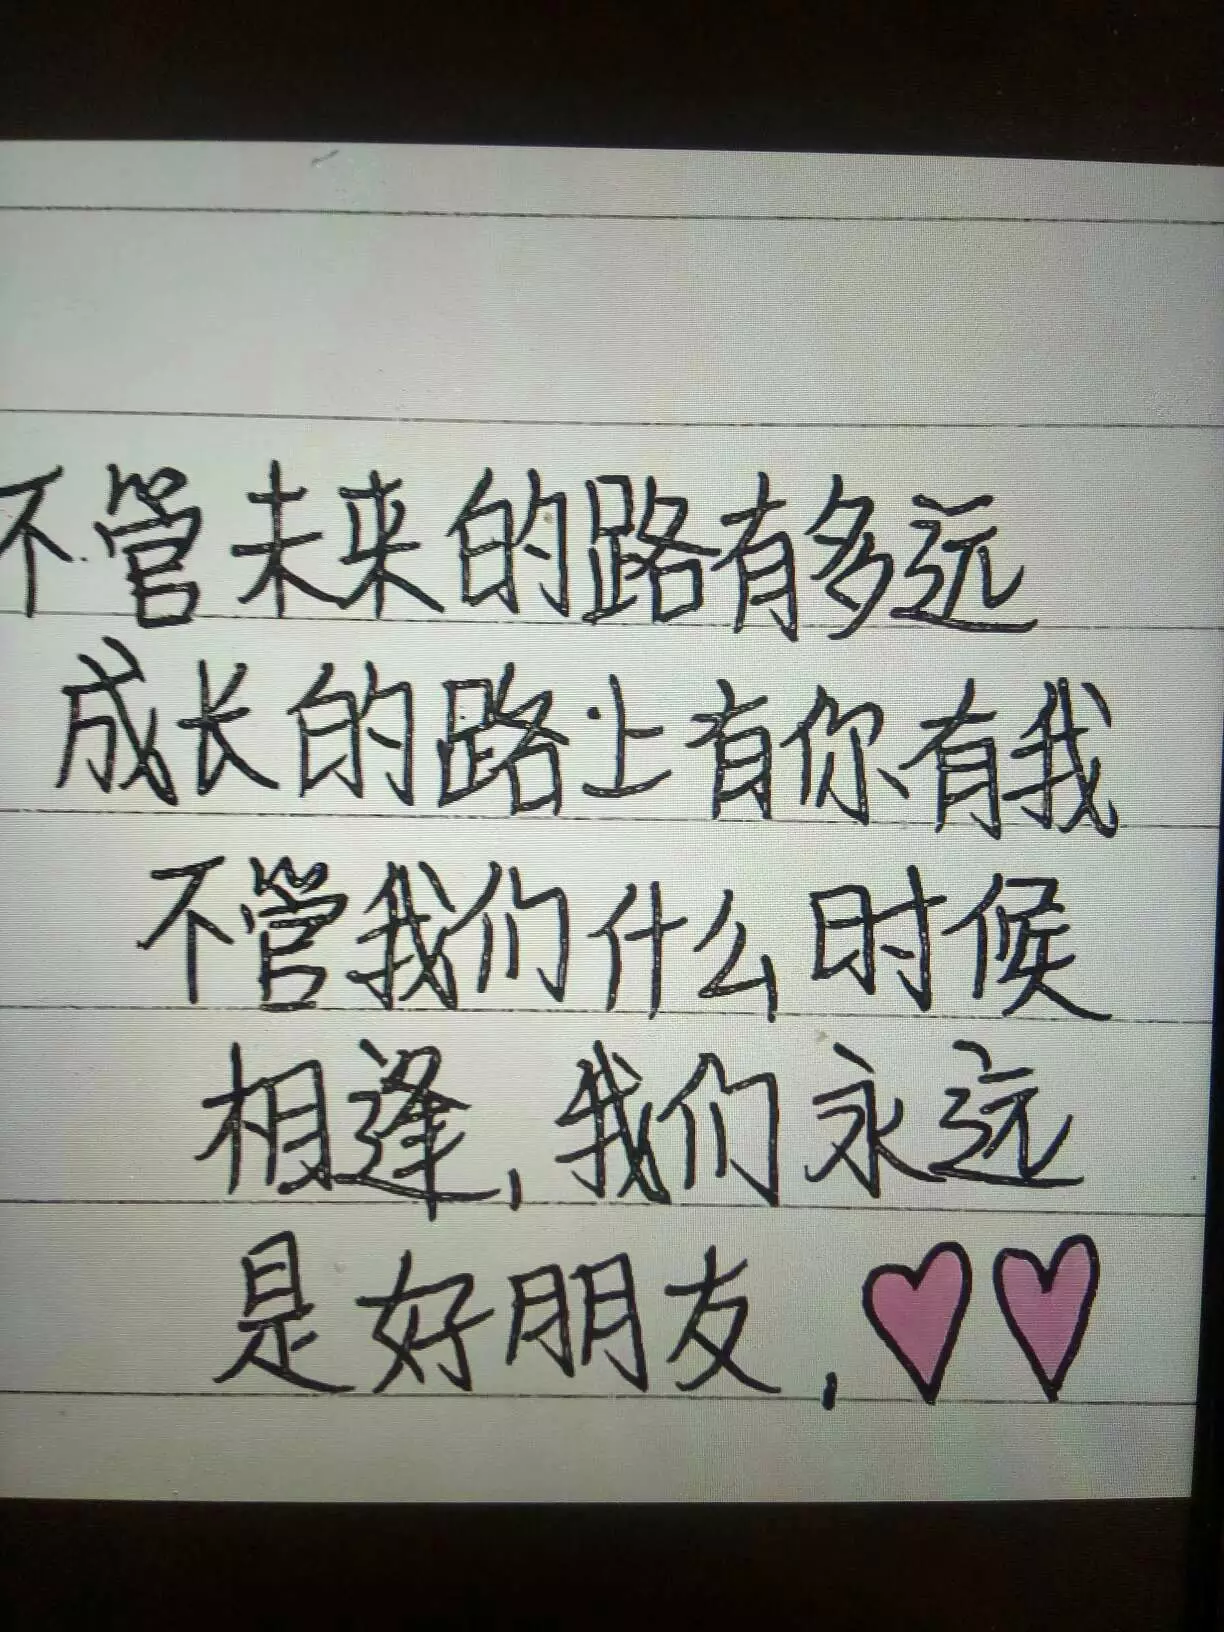 不管未来的路有多远
成长的路上有你有我
不管我们什么时候
相逢,我们永远
是好朋友,